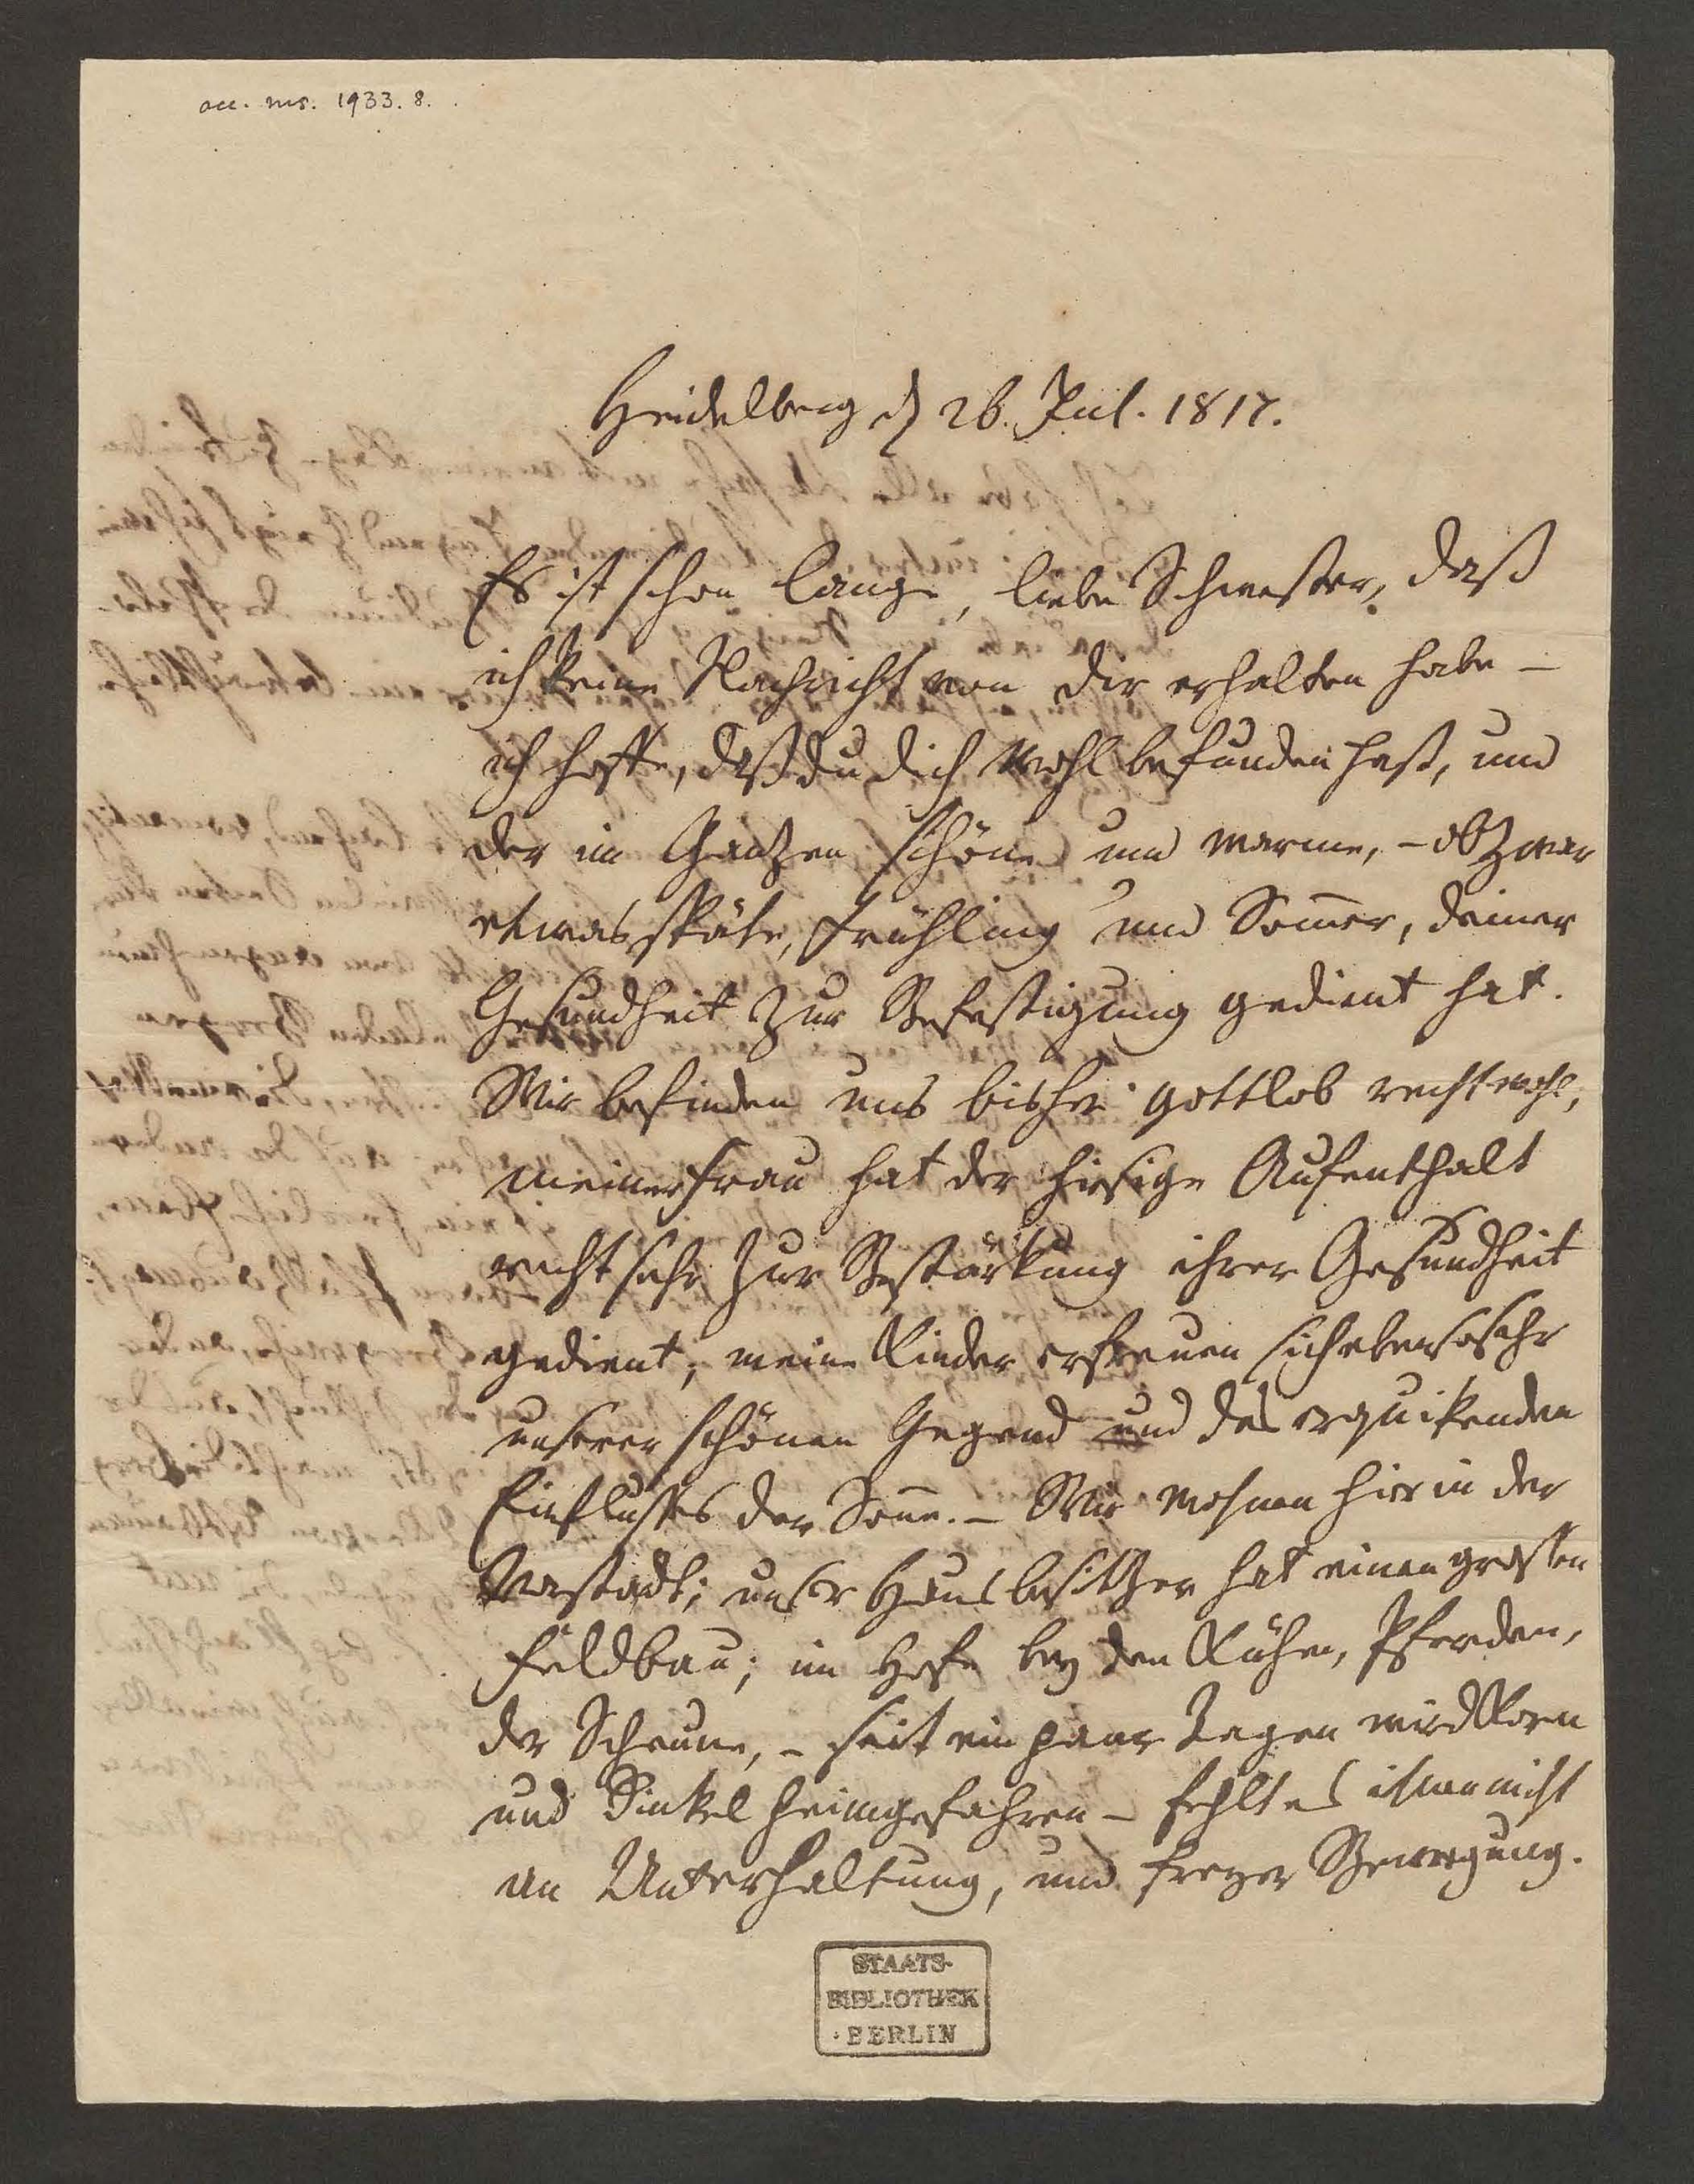 acc. ms. 1933. 8.
Heidelberg d 26. Jul. 1817.
Es ist schon lange, liebe Schwester, daß
ich keine Nachricht von dir erhalten habe –
ich hoffe, daß du dich wohl befunden hast, und
der im Ganzen schöne und warme, – obzwar
etwas späte, Frühling und Som̄er, deiner
Gesundheit zur Befestigung gedient hat.
Wir befinden uns bisher gottlob recht wohl;
meiner Frau hat der hiesige Aufenthalt
recht sehr zur Bestärkung ihrer Gesundheit
gedient; meine Kinder erfreuen sich ebensosehr
unserer schönen Gegend und des erquikenden
Einflusses der Son̄e. – Wir wohnen hier in der
Vorstadt; unser Hausbesitzer hat einen grossen
Feldbau; im Hofe bey den Kühen, Pferden,
der Scheune, – seit ein paar Tagen wird Korn
und Dinkel heimgefahren – fehlt es ihnen nicht
an Unterhaltung, und freyer Bewegung.
STAATS-
BIBLIOTHEK
· BERLIN